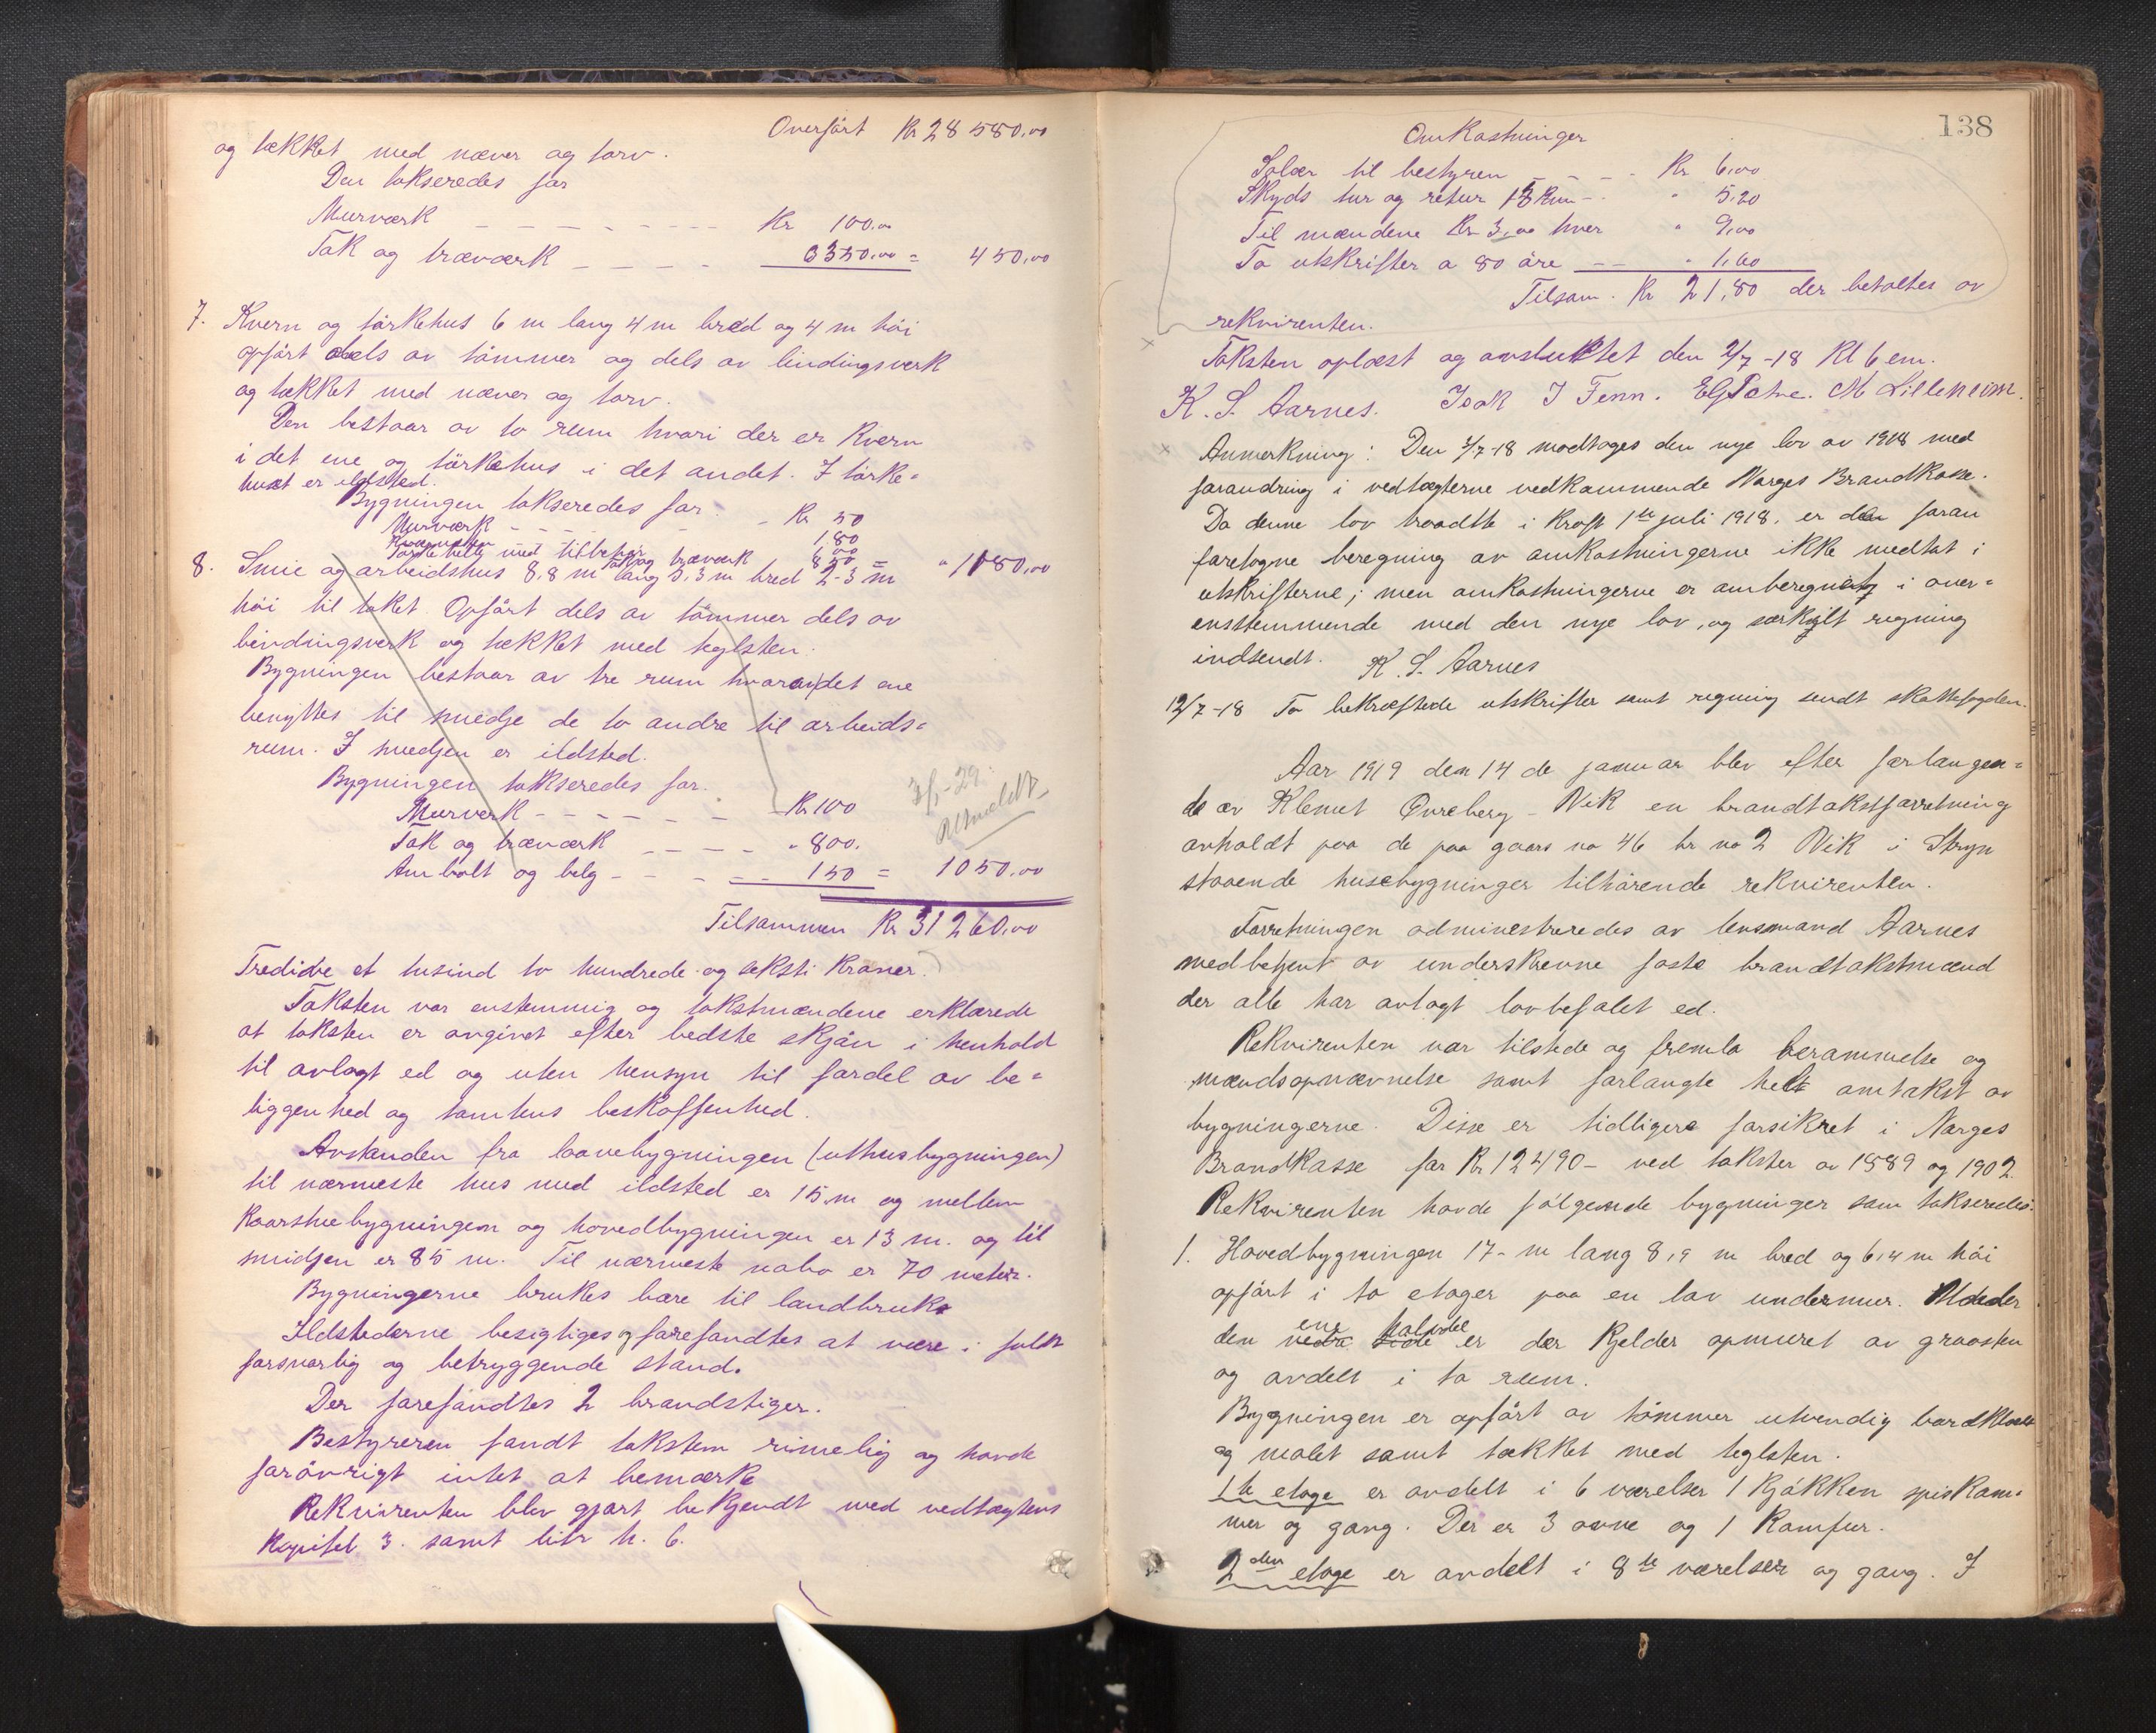 Overført Kr 28 580,00
og tækket med næver og torv.
Den takseredes for
Murværk - - - - - - - Kr 100.00
Tak og træværk - - - - 350,00 = 450,00
7. Kvern og törkehus 6 m lang 4 m bred og 4 m høi
opført dels av tömmer og dels av bindingsverk
og tækket med næver og torv.
Den bestaar av to rum hvori der er kvern
i det ene og törkehus i det andet. I törke=
huset er ildsted.
Bygningen takseredes for.
Murværk - - - - Kr 50
180
Törkehelle med tilbehør
Tak og træværk 850 = " 1180,00
8. Smie og arbeidshus 8,8 m lang 5,3 m bred 2-3 m
höi til taket. Opfört dels av tömmer dels av
bindingsverk og tækket med teglsten.
Bygningen bestaar av tre rum hvorav det ene
benyttes til smedje de to andre til arbeids=
rum. I smedjen er ildsted.
Bygningen takseredes for.
Murverk - - - - - - Kr 100
7/1-29.
Utmeldt
Tak og træværk - - - - " 800.
Ambolt og belg - - - - - 150 = 1050,00
Tilsammen Kr 31 260,00
Tredive et tusind to hundrede og seksti kroner.
Taksten var enstemmig og takstmændene erklærede
at taksten er avgivet efter bedste skjön i henhold
til avlagt ed og uten hensyn til fordel av be=
liggenhed og tomtens beskaffenhed.
Avstanden fra laavebygningen (uthusbygningen)
til nærmeste hus med ildsted er 15 m og mellem
kaarstuebygningen og hovedbygningen er 13 m. og til
smidjen er 85 m. Til nærmeste nabo er 70 meter.
Bygningerne brukes bare til landbruk
Ildstederne besigtiges og forefandtes at være i fuldt
forsvarlig og betryggende stand.
Der forefandtes 2 brandstiger.
Bestyreren fandt taksten rimelig og havde
forövrigt intet at bemærke
Rekvirenten blev gjort bekjendt med vedtægtens
Kapitel 3. samt litr h. 6.
138
Omkostninger
Salær til bestyren - - - - Kr 6,00
Skyds tur og retur 13 km - - " 5,20
Til mændene Kr 3,00 hver " 9,00
To utskrifter a 80 öre - - " 1,60
Tilsam. Kr 21,80 der betaltes av
rekvirenten.
Taksten oplæst og avsluttet den 2/7-18 Kl 6 em.
K. S. Aarnes. Isak J Tenn. M Lilleheim.
Anmerkning: Den 3/7-18 modtages den nye lov av 1918 med
forandring i vedtægterne vedkommende Norges Brandkasse.
Da denne lov traadte i kraft 1ste juli 1918, er den foran
foretagne beregning av omkostningerne ikke medtat i
utskrifterne; men omkostningerne er omberegnet i over=
ensstemmende med den nye lov, og særskilt regning
indsendt. K. S. Aarnes
12/7-18 To bekræftede utskrifter samt regning sendt skattefogden.
Aar 1919 den 14 de januar blev efter forlangen=
de av Klemet Øvreberg - Vik en brandtakstforretning
avholdt paa de paa gaars no 46 br no 2 Vik i Stryn
staaende husebygninger tilhörende rekvirenten.
Forretningen administreredes av lensmand Aarnes
medbetjent av underskrevne faste brandtakstmænd
der alle har avlagt lovbefalet ed.
Rekvirenten var tilstede og fremla berammelse og
mændsopnævnelse samt forlangte helt omtakst av
bygningerne. Disse er tidligere forsikret i Norges
Brandkasse for Kr 12490 - ved takster av 1889 og 1902.
Rekvirenten havde følgende bygninger som takseredes:
1. Hovedbygningen 17- m lang 8,9 m bred og 6,4 m höi
opfört i to etager paa en lav undermur. Under
den ene halvdel er der kjelder opmuret av graasten
og avdelt i to rum.
Bygningen er opfört av tömmer utvendig bordklædt
og malet samt tækket med teglsten.
1te etage er avdelt i 6 værelser 1 kjökken spiskam=
mer og gang. Der er 3 ovne og 1 komfur.
2den etage er avdelt i 8te værelser og gang. I